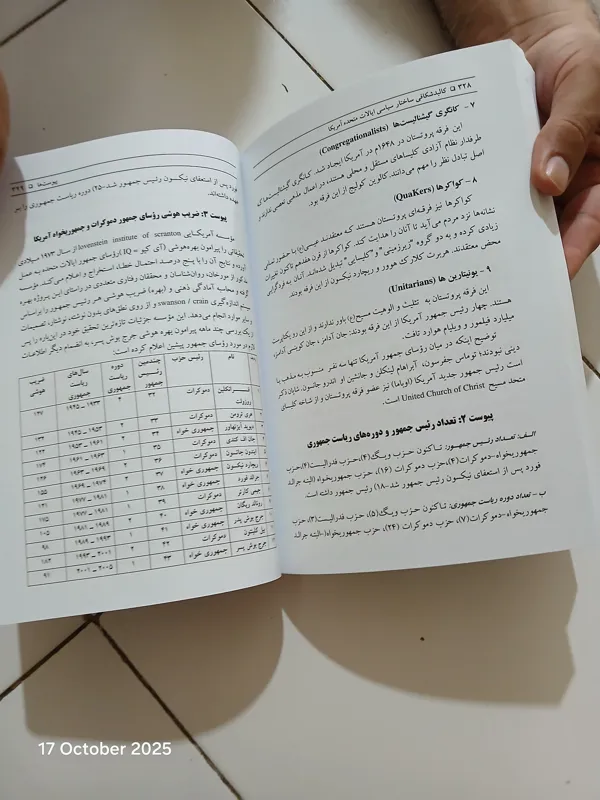 ۳۲۸ □ کالبدشکافی ساختار سیاسی ایالات متحده آمریکا
۷ - کانگری گیشنالیست‌ها (Congregationalists)
این فرقه پروتستان در ۱۶۴۸م در آمریکا ایجاد شد. کانگری گیشنالیست‌ها
طرفدار نظام آزادی کلیساهای مستقل و محلی هستند، در اعمال مذهبی تعصبی ندارند و
اصل تبادل نظر را مهم می‌دانند. کالوین کولیج از این فرقه بود.
۸ - کواکرها (QuaKers)
کواکرها نیز فرقه‌ای پروتستان هستند که معتقدند عیسی(ع) با حضور
نشانه‌ها نزد مردم می‌آید تا آنان را هدایت کند. کواکرها از قرن هفدهم تاکنون تغییرات
زیادی کرده و به دو گروه "زیرزمینی" و "کلیسایی" تبدیل شده‌اند. آنان به فردگرایی
محض معتقدند. هربرت کلارک هوور و ریچارد نیکسون از این فرقه بودند.
۹ - یونیتارین ها (Unitarians)
این فرقه پروتستان به تثلیث و الوهیت مسیح(ع) باور ندارند و از این رو یکتاپرست
هستند. چهار رئیس جمهور آمریکا از این فرقه بودند: جان آدامز، جان کوینسی آدامز،
میلیارد فیلمور و ویلیام هوارد تافت.
توضیح اینکه در میان رؤسای جمهور آمریکا تنها سه نفر منسوب به مذهب یا
دینی نبودند؛ توماس جفرسون، آبراهام لینکلن و جانشین او اندرو جانسون. شایان ذکر
است رئیس جمهور جدید آمریکا (اوباما) نیز عضو فرقه پروتستان و از شاخه کلیسای
متحد مسیح United Church of Christ است.
پیوست ۲: تعداد رئیس جمهور و دوره‌های ریاست جمهوری
الف: تعداد رئیس جمهور: تاکنون حزب ویگ(۴)، حزب فدرالیست(۲)، حزب
جمهوریخواه-دموکرات(۴)، حزب دموکرات (۱۶)، حزب جمهوریخواه (البته جرالد
فورد پس از استعفای نیکسون رئیس جمهور شد-۱۸) رئیس جمهور داشته است.
ب - تعداد دوره ریاست جمهوری: تاکنون حزب ویگ(۵)، حزب فدرالیست(۳)، حزب
جمهوریخواه-دموکرات(۷)، حزب دموکرات (۲۴)، حزب جمهوریخواه(-البته جرالد
پیوست‌ها □ ۳۲۹
فورد پس از استعفای نیکسون رئیس جمهور شد-۲۵) دوره ریاست جمهوری را بر
عهده داشته‌اند.
پیوست ۳: ضریب هوشی رؤسای جمهور دموکرات و جمهوریخواه آمریکا
مؤسسه آمریکایی lovenstein institute of scranton از سال ۱۹۷۳ میلادی
تحقیقاتی را پیرامون بهره‌هوشی (آی کیو = IQ) رؤسای جمهور ایالات متحده به عمل
آورده و نتایج آن را با پنج درصد احتمال خطا، استخراج و اعلام می‌کند. مؤسسه
از مورخان، روان‌شناسان و محققان رفتاری متعددی در راستای این پروژه بهره
گرفته و محاسبه آمادگی ذهنی و (بهره) ضریب هوشی هر رئیس جمهور را براساس
سیستم اندازه گیری swanson / crain و از روی نطق‌های بدون نوشته، نوشتار، تصمیمات
و سایر موارد انجام می‌دهد. این مؤسسه جزئیات تازه‌ترین تحقیق خود در این‌باره را پس
از یک بررسی چند ماهه پیرامون بهره هوشی جرج بوش پسر، به انضمام دیگر اطلاعات
در مورد رؤسای جمهور پیشین اعلام کرده است:
نام | رئیس حزب | چندمین رئیس جمهور | دوره ریاست جمهوری | سال‌های ریاست جمهوری | ضریب هوشی
فرانکلین روزولت | دموکرات | ۳۲ | ۴ | ۱۹۳۳ - ۱۹۴۵ | ۱۴۷
هری ترومن | دموکرات | ۳۳ | ۲ | | ۱۳۲
دیوید آیزنهاور | جمهوری خواه | ۳۴ | ۲ | ۱۹۵۳ - ۱۹۶۱ | ۱۲۲
جان اف کندی | دموکرات | ۳۵ | ۱ | ۱۹۶۱ - ۱۹۶۳ | ۱۷۴
لیندن جانسون | دموکرات | ۳۶ | ۲ | ۱۹۶۳ - ۱۹۶۹ | ۱۲۶
ریچارد نیکسون | جمهوری خواه | ۳۷ | ۲ | ۱۹۶۹ - ۱۹۷۴ | ۱۵۵
جرالد فورد | جمهوری خواه | ۳۸ | ۱ | | ۱۲۱
جیمی کارتر | دموکرات | ۳۹ | ۱ | ۱۹۷۷ - ۱۹۸۱ | ۱۷۵
رونالد ریگان | جمهوری خواه | ۴۰ | ۲ | ۱۹۸۱ - ۱۹۸۹ | ۱۰۵
جرج بوش پدر | جمهوری خواه | ۴۱ | ۱ | ۱۹۸۹ - ۱۹۹۳ | ۹۸
بیل کلینتون | دموکرات | ۴۲ | ۲ | ۱۹۹۳ - ۲۰۰۱ | ۱۸۲
جرج بوش پسر | جمهوری خواه | ۴۳ | ۱ | ۲۰۰۱ - ۲۰۰۵ | ۹۱
17 October 2025